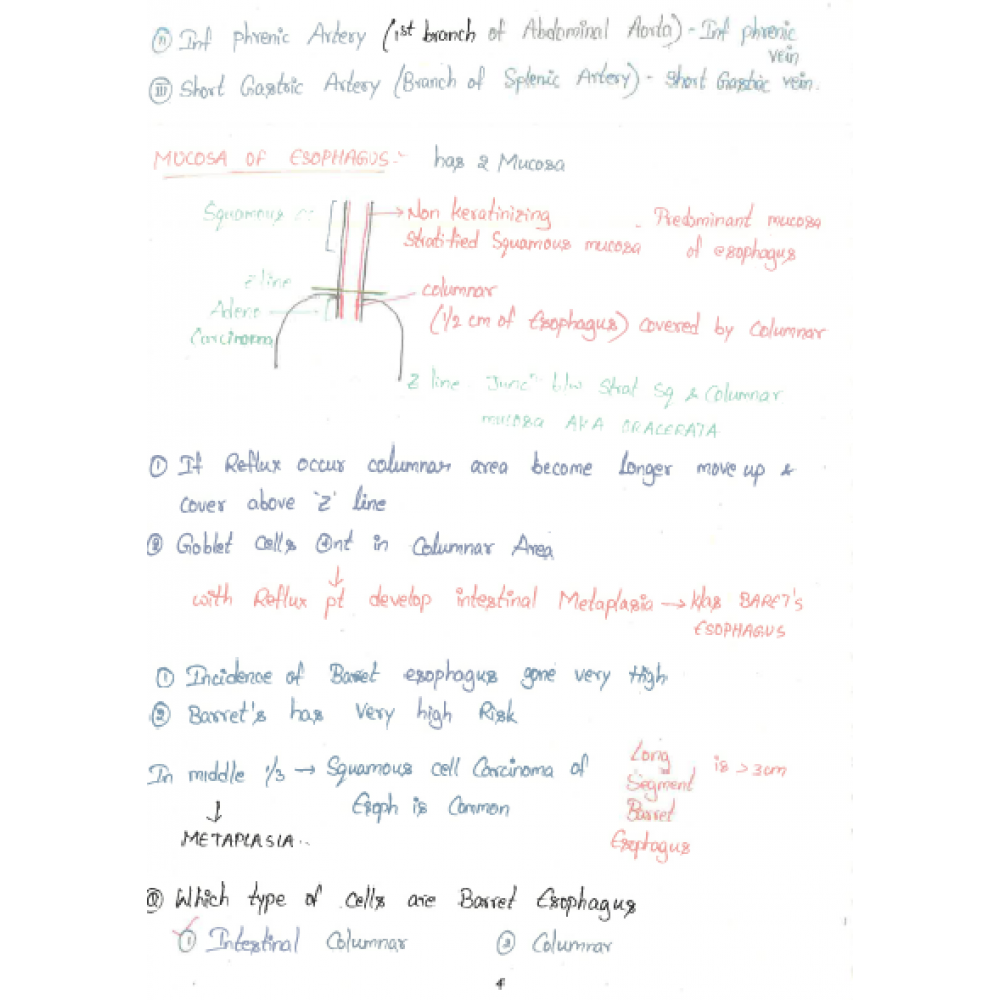 (ii) Inf phrenic Artery (1st branch of Abdominal Aorta) - Inf phrenic vein
(iii) Short Gastric Artery (Branch of Splenic Artery) - Short Gastric vein.
MUCOSA OF ESOPHAGUS:- has 2 Mucosa
Squamous
→ Non keratinizing
Stratified Squamous mucosa
- Predominant mucosa
of esophagus
Z line
Adeno
Carcinoma
columnar
(1/2 cm of Esophagus) covered by Columnar
Z line - Juncⁿ b/w Strat Sq & Columnar
mucosa AKA ORACERATA
① If Reflux occur columnar area become longer move up &
cover above 'Z' line
② Goblet cells ⊕nt in Columnar Area
↓
with Reflux pt develop intestinal Metaplasia → k/as BARET'S
ESOPHAGUS
① Incidence of Barret esophagus gone very High
② Barret's has very high Risk
In middle 1/3 → Squamous cell Carcinoma of
Esoph is Common
↓
METAPLASIA..
Long
Segment
Barret
Esophagus
is > 3cm
Ⓠ Which type of cells are Barret Esophagus
① Intestinal Columnar ② Columnar
4